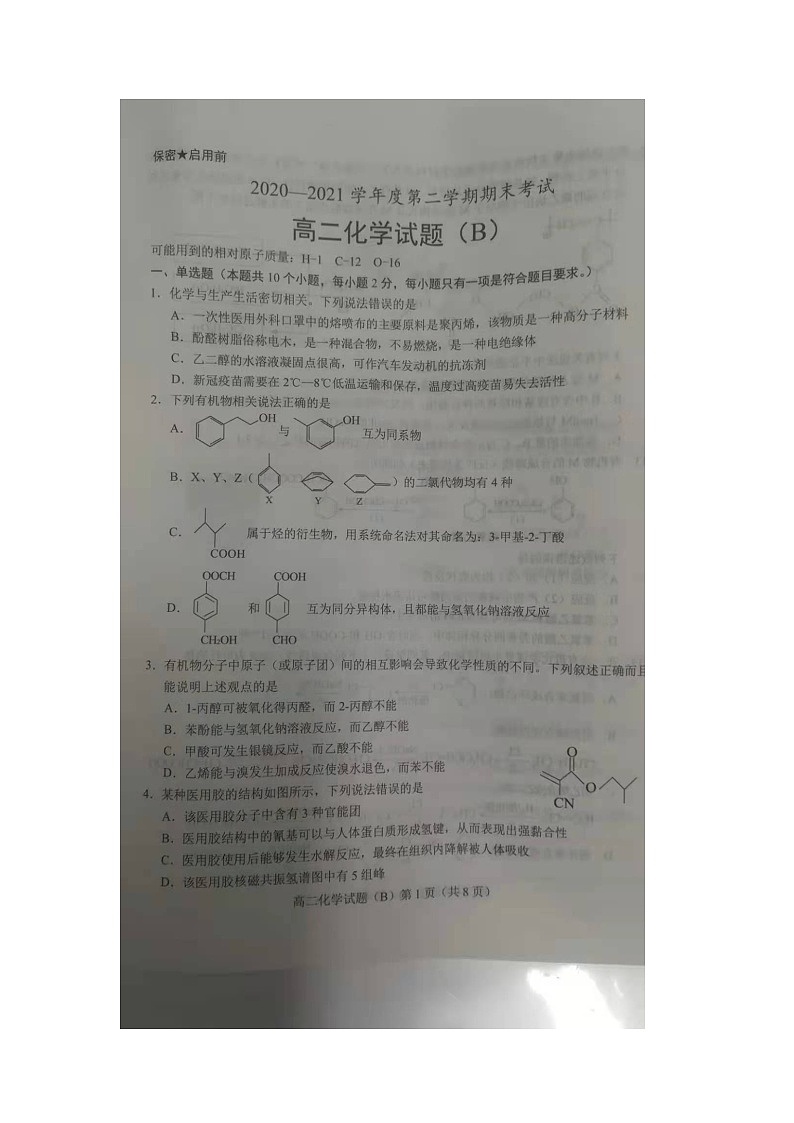 保密★启用前
2020—2021学年度第二学期期末考试
高二化学试题（B）
可能用到的相对原子质量：H-1 C-12 O-16
一、单选题（本题共10个小题，每小题2分，每小题只有一项是符合题目要求。）
1．化学与生产生活密切相关。下列说法错误的是
A．一次性医用外科口罩中的熔喷布的主要原料是聚丙烯，该物质是一种高分子材料
B．酚醛树脂俗称电木，是一种混合物，不易燃烧，是一种电绝缘体
C．乙二醇的水溶液凝固点很高，可作汽车发动机的抗冻剂
D．新冠疫苗需要在2℃—8℃低温运输和保存，温度过高疫苗易失去活性
2．下列有机物相关说法正确的是
A． OH 与 OH 互为同系物
B．X、Y、Z（ ）的二氯代物均有4种
X Y Z
C． 属于烃的衍生物，用系统命名法对其命名为：3-甲基-2-丁酸
COOH
OOCH COOH
D． 和 互为同分异构体，且都能与氢氧化钠溶液反应
CH₂OH CHO
3．有机物分子中原子（或原子团）间的相互影响会导致化学性质的不同。下列叙述正确而且
能说明上述观点的是
A．1-丙醇可被氧化得丙醛，而2-丙醇不能
B．苯酚能与氢氧化钠溶液反应，而乙醇不能
C．甲酸可发生银镜反应，而乙酸不能
D．乙烯能与溴发生加成反应使溴水退色，而苯不能
4．某种医用胶的结构如图所示，下列说法错误的是
O
O
CN
A．该医用胶分子中含有3种官能团
B．医用胶结构中的氰基可以与人体蛋白质形成氢键，从而表现出强黏合性
C．医用胶使用后能够发生水解反应，最终在组织内降解被人体吸收
D．该医用胶核磁共振氢谱图中有5组峰
高二化学试题（B）第1页（共8页）